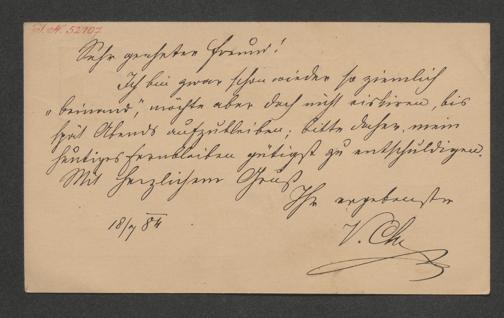 Sehr geehrter Freund!
Ich bin zwar schon wieder so ziemlich
"beinand", möchte aber doch nicht riskiren, bis
spät Abends aufzubleiben; bitte daher, mein
heutiges Fernbleiben gütigst zu entschuldigen.
Mit herzlichem Gruß
Ihr ergebenster
18/ 84
V.